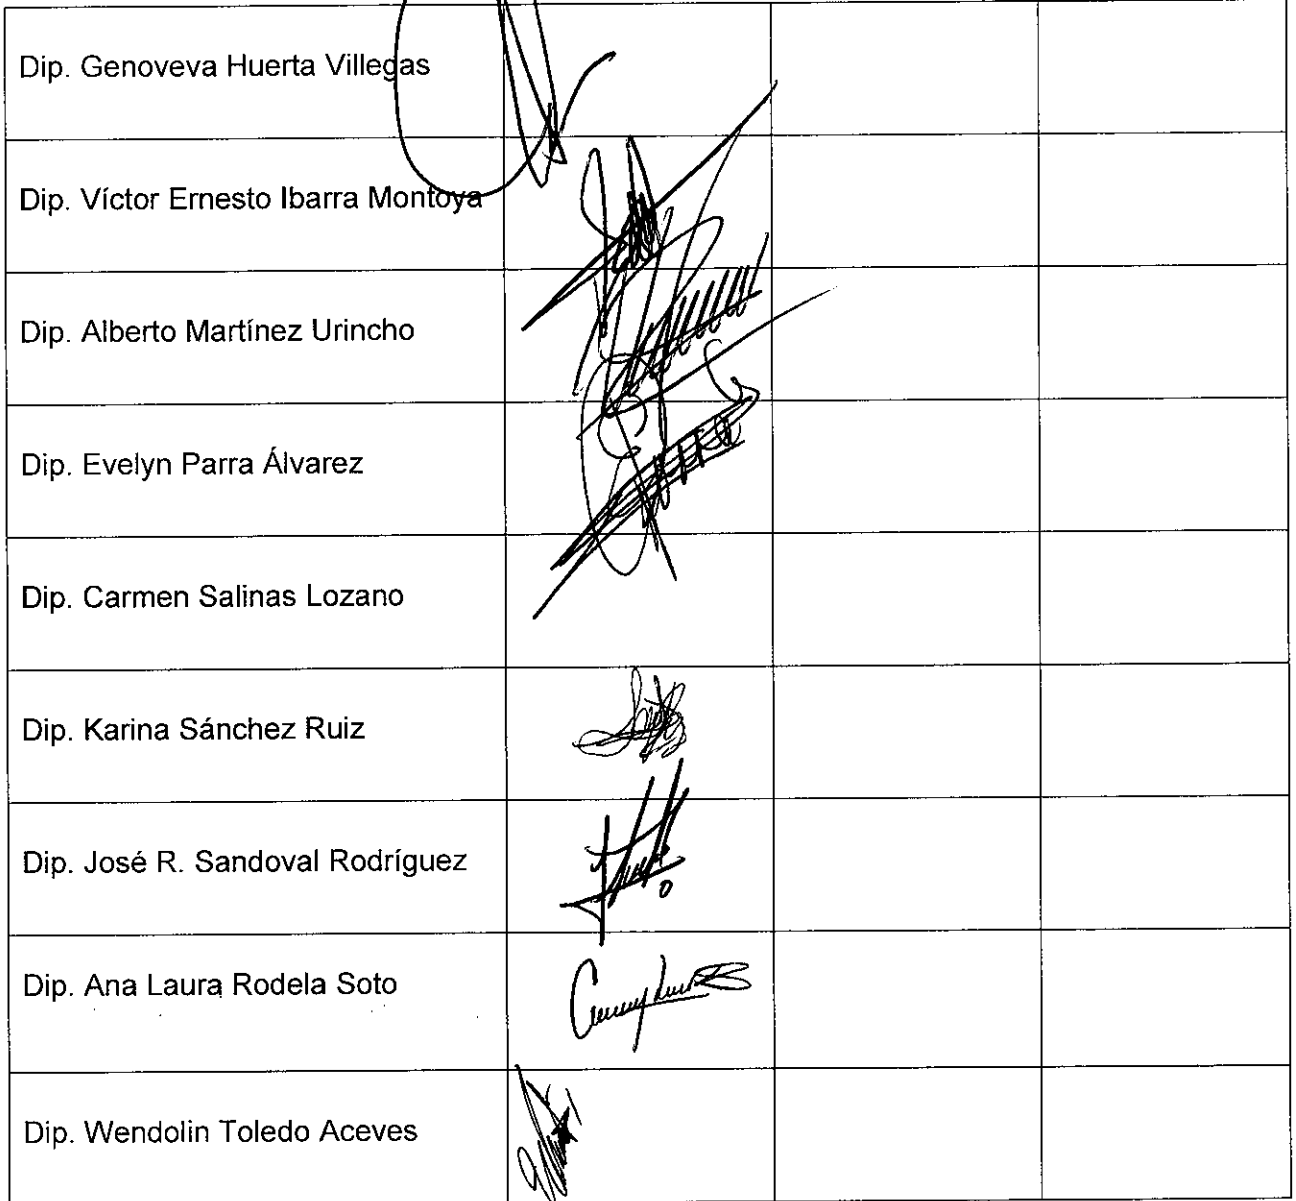 Dip. Genoveva Huerta Villegas
Dip. Víctor Ernesto Ibarra Montoya
Dip. Alberto Martínez Urincho
Dip. Evelyn Parra Álvarez
Dip. Carmen Salinas Lozano
Dip. Karina Sánchez Ruiz
Dip. José R. Sandoval Rodríguez
Dip. Ana Laura Rodela Soto
Dip. Wendolin Toledo Aceves